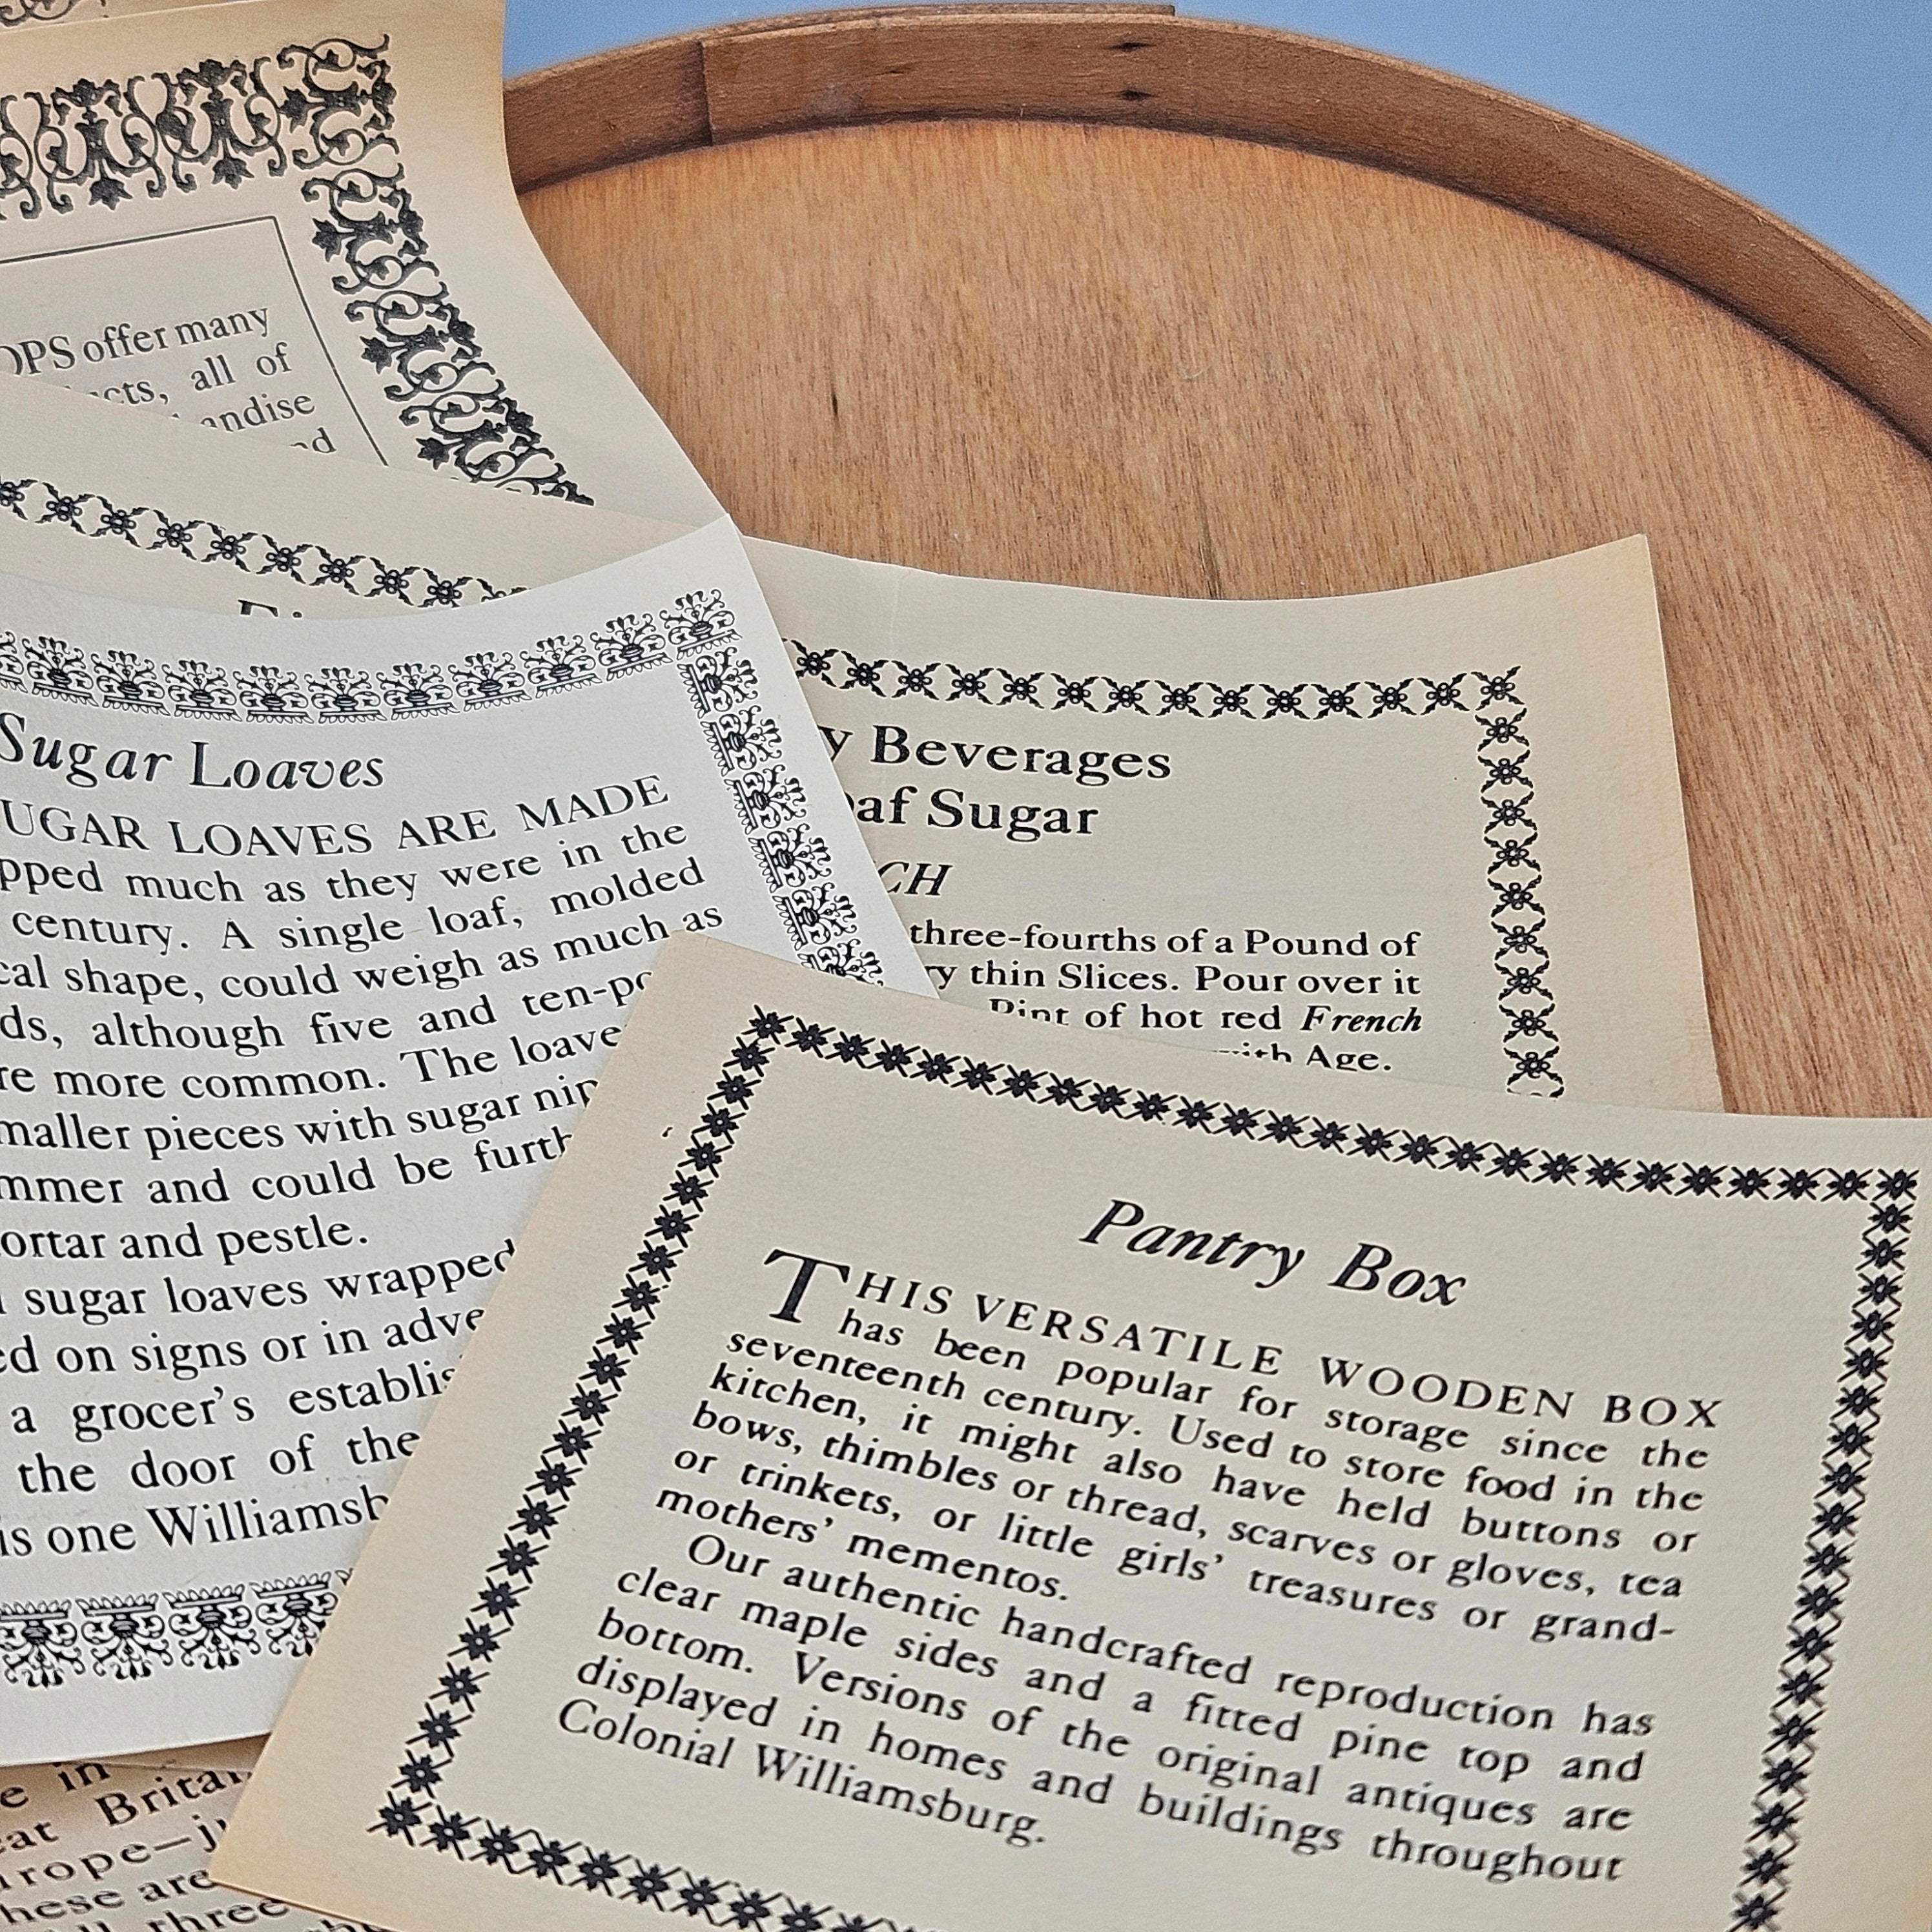 offer many
all of
Sugar Loaves
LOAVES ARE MADE
much as they were in the
century. A single loaf, molded
shape, could weigh as much as
although five and
more common. The
pieces with sugar
and could be
and pestle.
sugar loaves wrapped
on signs or in
a grocer's
the door of the
is one
Beverages
Sugar
three-fourths of a Pound of
thin Slices. Pour over it
Pint of hot red French
with Age.
Pantry Box
THIS VERSATILE WOODEN BOX
has been popular for storage since the
seventeenth century. Used to store food in the
kitchen, it might also have held buttons or
bows, thimbles or thread, scarves or gloves, tea
or trinkets, or little girls' treasures or grand-
mothers' mementos.
Our authentic handcrafted reproduction has
clear maple sides and a fitted pine top and
bottom. Versions of the original antiques are
displayed in homes and buildings throughout
Colonial Williamsburg.
in
are
three